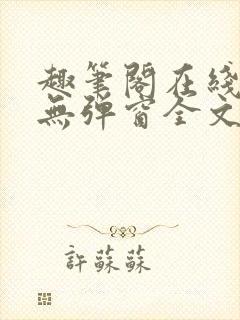 趣筆閣在綫
無彈窗全文
許蘇蘇